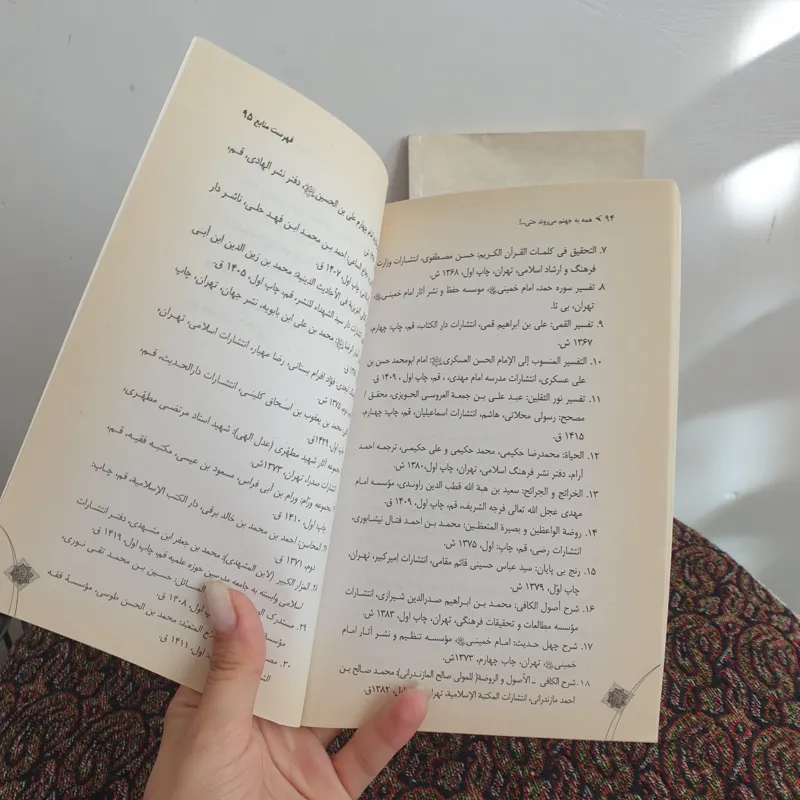 ۹۴ ➤ همه به جهنم می‌روند حتی...!
۷. التحقیق فی کلمات القرآن الکریم: حسن مصطفوی، انتشارات وزارت
فرهنگ و ارشاد اسلامی، تهران، چاپ اول، ۱۳۶۸ ش.
۸. تفسیر سوره حمد، امام خمینی، موسسه حفظ و نشر آثار امام خمینی،
تهران، بی تا.
۹. تفسیر القمی: علی بن ابراهیم قمی، انتشارات دار الکتاب، قم، چاپ: چهارم،
۱۳۶۷ ش.
۱۰. التفسیر المنسوب إلی الإمام الحسن العسکری: امام ابومحمد حسن بن
علی عسکری، انتشارات مدرسه امام مهدی، ، قم، چاپ اول، ۱۴۰۹ ق
۱۱. تفسیر نور الثقلین: عبد علی بن جمعة العروسی الحویزی، محقق /
مصحح: رسولی محلاتی، هاشم، انتشارات اسماعیلیان، قم، چاپ: چهارم،
۱۴۱۵ ق.
۱۲. الحیاة: محمدرضا حکیمی، محمد حکیمی و علی حکیمی، ترجمه احمد
آرام، دفتر نشر فرهنگ اسلامی، تهران، چاپ اول، ۱۳۸۰ش.
۱۳. الخرائج و الجرائح: سعید بن هبة الله قطب الدین راوندی، مؤسسه امام
مهدی عجل الله تعالی فرجه الشریف، قم، چاپ اول، ۱۴۰۹ ق.
۱۴. روضة الواعظین و بصیرة المتعظین: محمد بن احمد فتال نیشابوری،
انتشارات رضی، قم، چاپ: اول، ۱۳۷۵ ش.
۱۵. رنج بی پایان: سید عباس حسینی قائم مقامی، انتشارات امیرکبیر، تهران،
چاپ اول، ۱۳۷۹ ش.
۱۶. شرح أصول الکافی: محمد بن ابراهیم صدرالدین شیرازی، انتشارات
مؤسسه مطالعات و تحقیقات فرهنگی، تهران، چاپ اول، ۱۳۸۳ ش.
۱۷. شرح چهل حدیث: امام خمینی، مؤسسه تنظیم و نشر آثار امام
خمینی، تهران، چاپ چهارم، ۱۳۷۳ش.
۱۸. شرح الکافی _ الأصول و الروضة( للمولی صالح المازندرانی): محمد صالح بن
احمد مازندرانی، انتشارات المکتبة الإسلامیة، تهران، اول، ۱۳۸۲ق.
فهرست منابع ۹۵
چهارم علی بن الحسین، دفتر نشر الهادی، قم،
الساعی: احمد بن محمد ابن فهد حلی، ناشر دار
اول، ۱۴۰۷ ق.
فی الأحادیث الدینیة: محمد بن زین الدین ابن أبی
دار سید الشهداء للنشر، قم، چاپ اول، ۱۴۰۵ ق.
محمد بن علی ابن بابویه، نشر جهان، تهران، چاپ
فؤاد افرام بستانی، رضا مهیار، انتشارات اسلامی، تهران،
۱۳۷۵ ش.
محمد بن یعقوب بن اسحاق کلینی، انتشارات دارالحدیث، قم،
اول، ۱۴۲۹ق.
مجموعه آثار شهید مطهّری (عدل الهی): شهید استاد مرتضی مطهّری،
انتشارات صدرا، تهران، ۱۳۷۳ش.
مجموعه ورّام: ورام بن أبی فراس، مسعود بن عیسی، مکتبه فقیه، قم،
چاپ اول، ۱۴۱۰ ق.
المحاسن: احمد بن محمد بن خالد برقی، دار الکتب الإسلامیة، قم، چاپ:
دوم، ۱۳۷۱ ق.
المزار الکبیر (لابن المشهدی): محمد بن جعفر ابن مشهدی، دفتر انتشارات
اسلامی وابسته به جامعه مدرسین حوزه علمیه قم، چاپ اول، ۱۴۱۹ ق.
۲۹. مستدرک المسائل: حسین بن محمد تقی نوری،
مؤسسة اول، ۱۴۰۸ ق.
۳۰. المتعبّد: محمد بن الحسن طوسی، مؤسسة فقه
اول، ۱۴۱۱ ق.